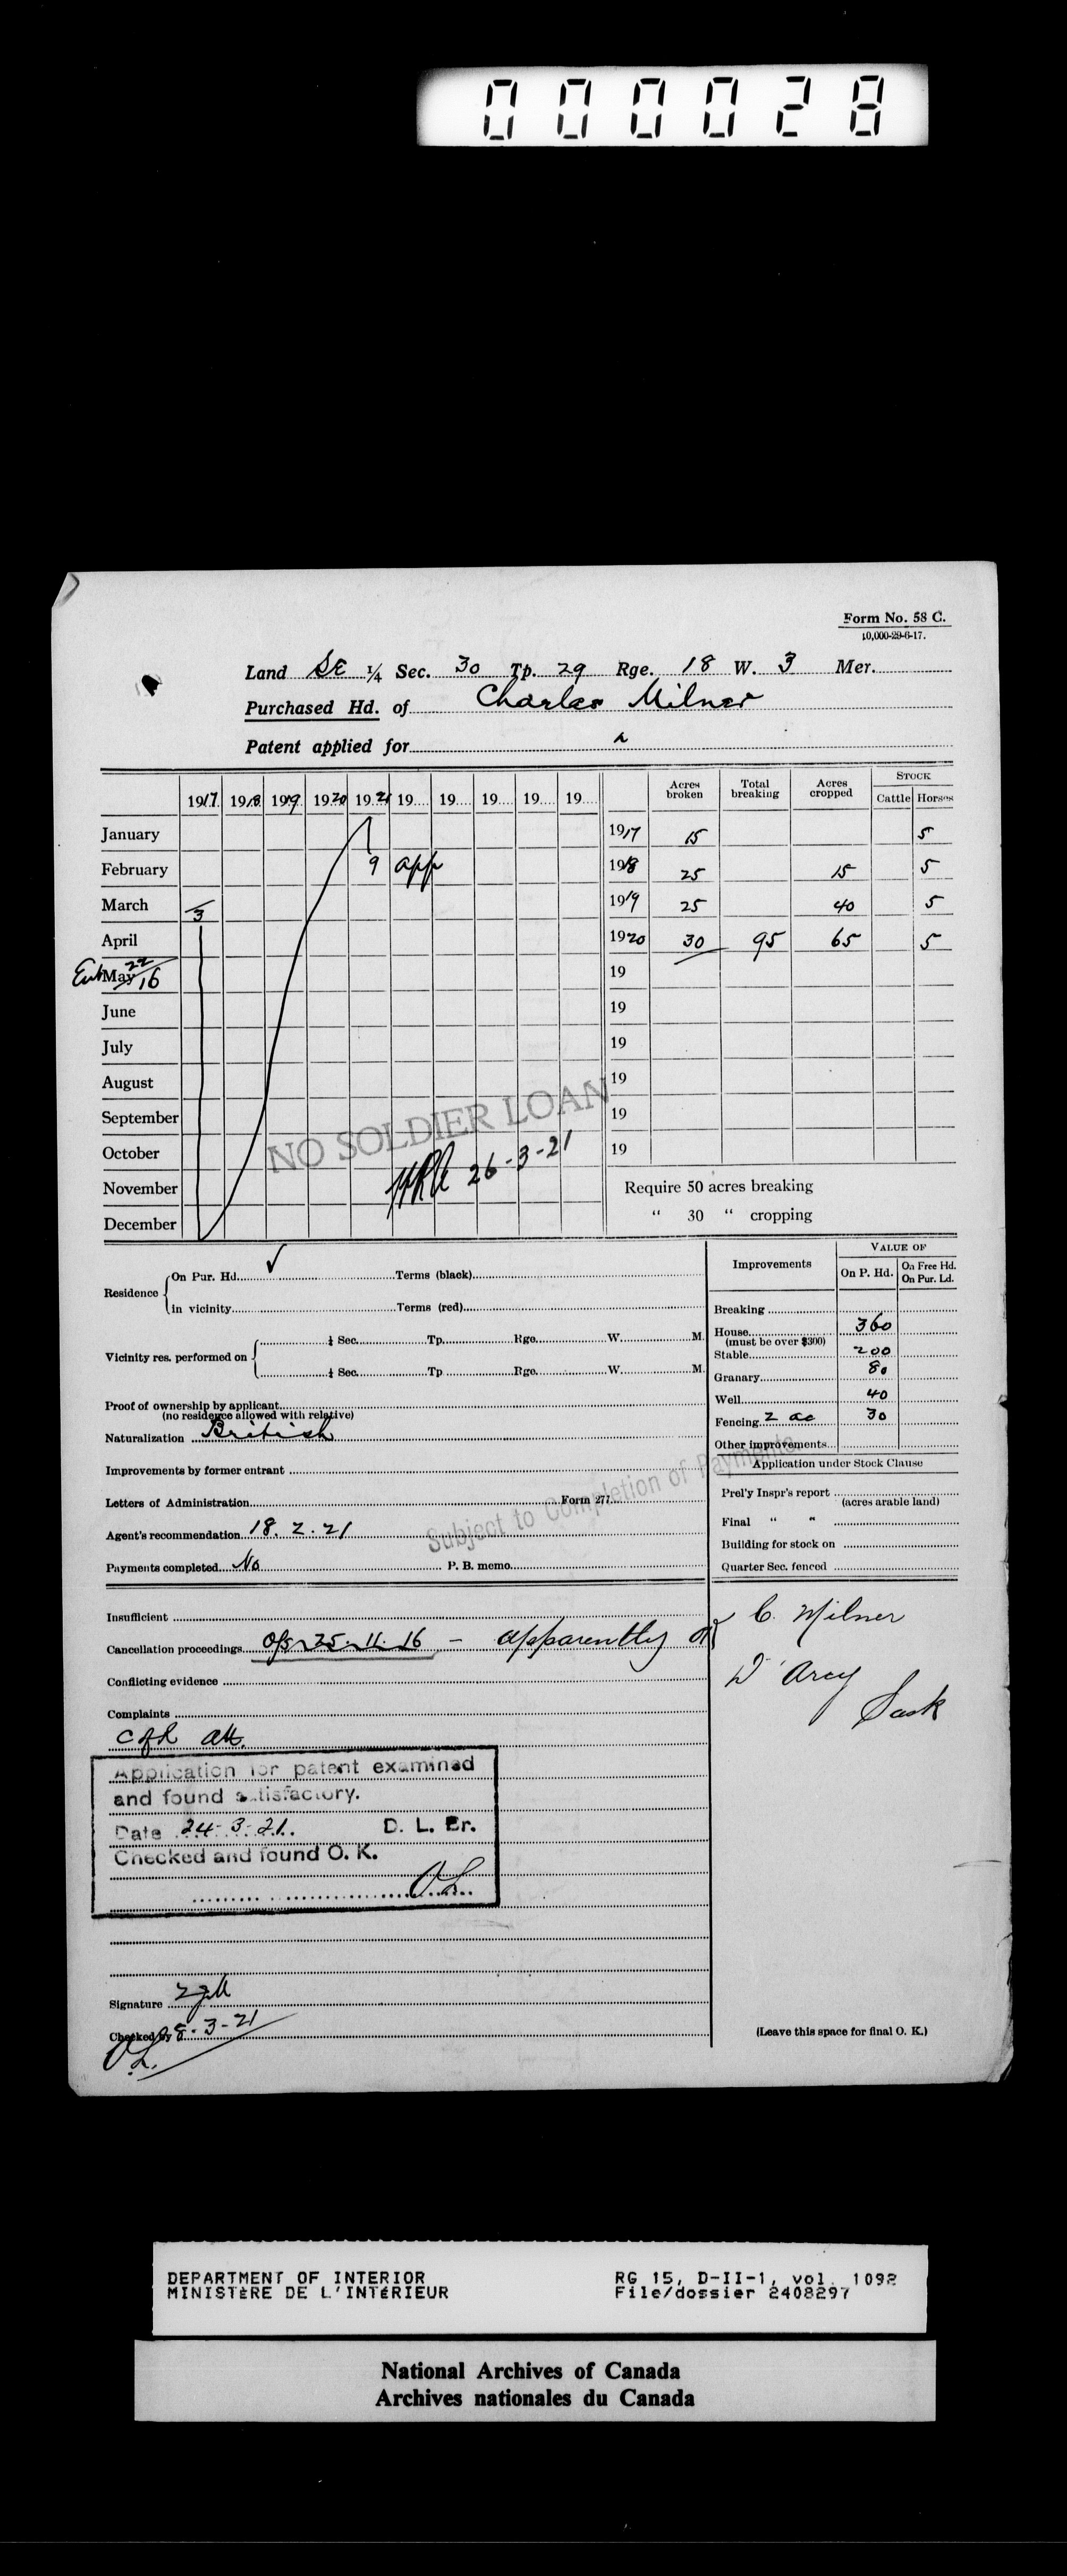 000028
Form No. 58 C.
10,000-29-6-17.
Land SE ¼ Sec. 30 Tp. 29 Rge. 18 W. 3 Mer.
Purchased Hd. of Charles Milner
Patent applied for
1917 1918 1919 1920 1921 19 19 19 19 19
Acres broken Total breaking Acres cropped STOCK Cattle Horses
January 1917 15 5
February 9 app 1918 25 15 5
March 3 1919 25 40 5
April 1920 30 95 65 5
Ent 22/16 May 19
June 19
July 19
August 19
September 19
October 19
NO SOLDIER LOAN
26-3-21
November Require 50 acres breaking
December " 30 " cropping
Residence
On Pur. Hd. ✓ Terms (black)
In vicinity Terms (red)
Vicinity res. performed on
¼ Sec. Tp. Rge. W. M.
¼ Sec. Tp. Rge. W. M.
Proof of ownership by applicant
(no residence allowed with relative)
Naturalization British
Improvements by former entrant
Letters of Administration Form 277
Agent's recommendation 18.2.21
Subject to Completion of Payments
Payments completed No P. B. memo.
Improvements VALUE OF
On P. Hd. On Free Hd. On Pur. Ld.
Breaking
House 360
(must be over $300)
Stable 200
Granary 80
Well 40
Fencing 2 ac 30
Other improvements
Application under Stock Clause
Prel'y Inspr's report
(acres arable land)
Final " "
Building for stock on
Quarter Sec. fenced
Insufficient
Cancellation proceedings 25.11.16 – apparently
Conflicting evidence
Complaints
C. Milner
D'Arcy
Sask
Application for patent examined
and found satisfactory.
Date 24-3-21. D. L. Br.
Checked and found O. K.
OL
Signature
Checked by 8-3-21
OL.
(Leave this space for final O. K.)
DEPARTMENT OF INTERIOR
MINISTÈRE DE L'INTÉRIEUR
RG 15, D-II-1, vol. 1092
File/dossier 2408297
National Archives of Canada
Archives nationales du Canada